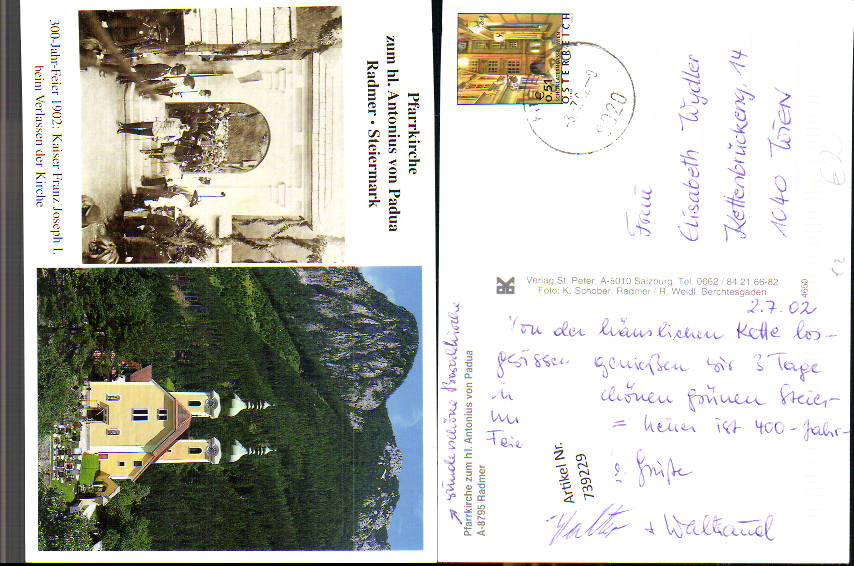 Pfarrkirche
zum hl. Antonius von Padua
Radmer • Steiermark
300-Jahr-Feier 1902: Kaiser Franz Joseph I.
beim Verlassen der Kirche
€ 0,51
ÖSTERREICH
Frau
Elisabeth Wydler
Kettenbrückeng. 14
1040 WIEN
€ 2
Verlag St. Peter, A-5010 Salzburg, Tel. 0662 / 84 21 66-82
Foto: K. Schober, Radmer / R. Weidl, Berchtesgaden
4650
2.7.02
Von der häuslichen Kette los-
gerissen genießen wir 3 Tage
in schönen grünen Steier-
= heuer ist 400-Jahr-
Feie
Grüße
+ Waltraud
→ wunderschöne Barockkirche
Pfarrkirche zum hl. Antonius von Padua
A-8795 Radmer
Artikel Nr.
739229